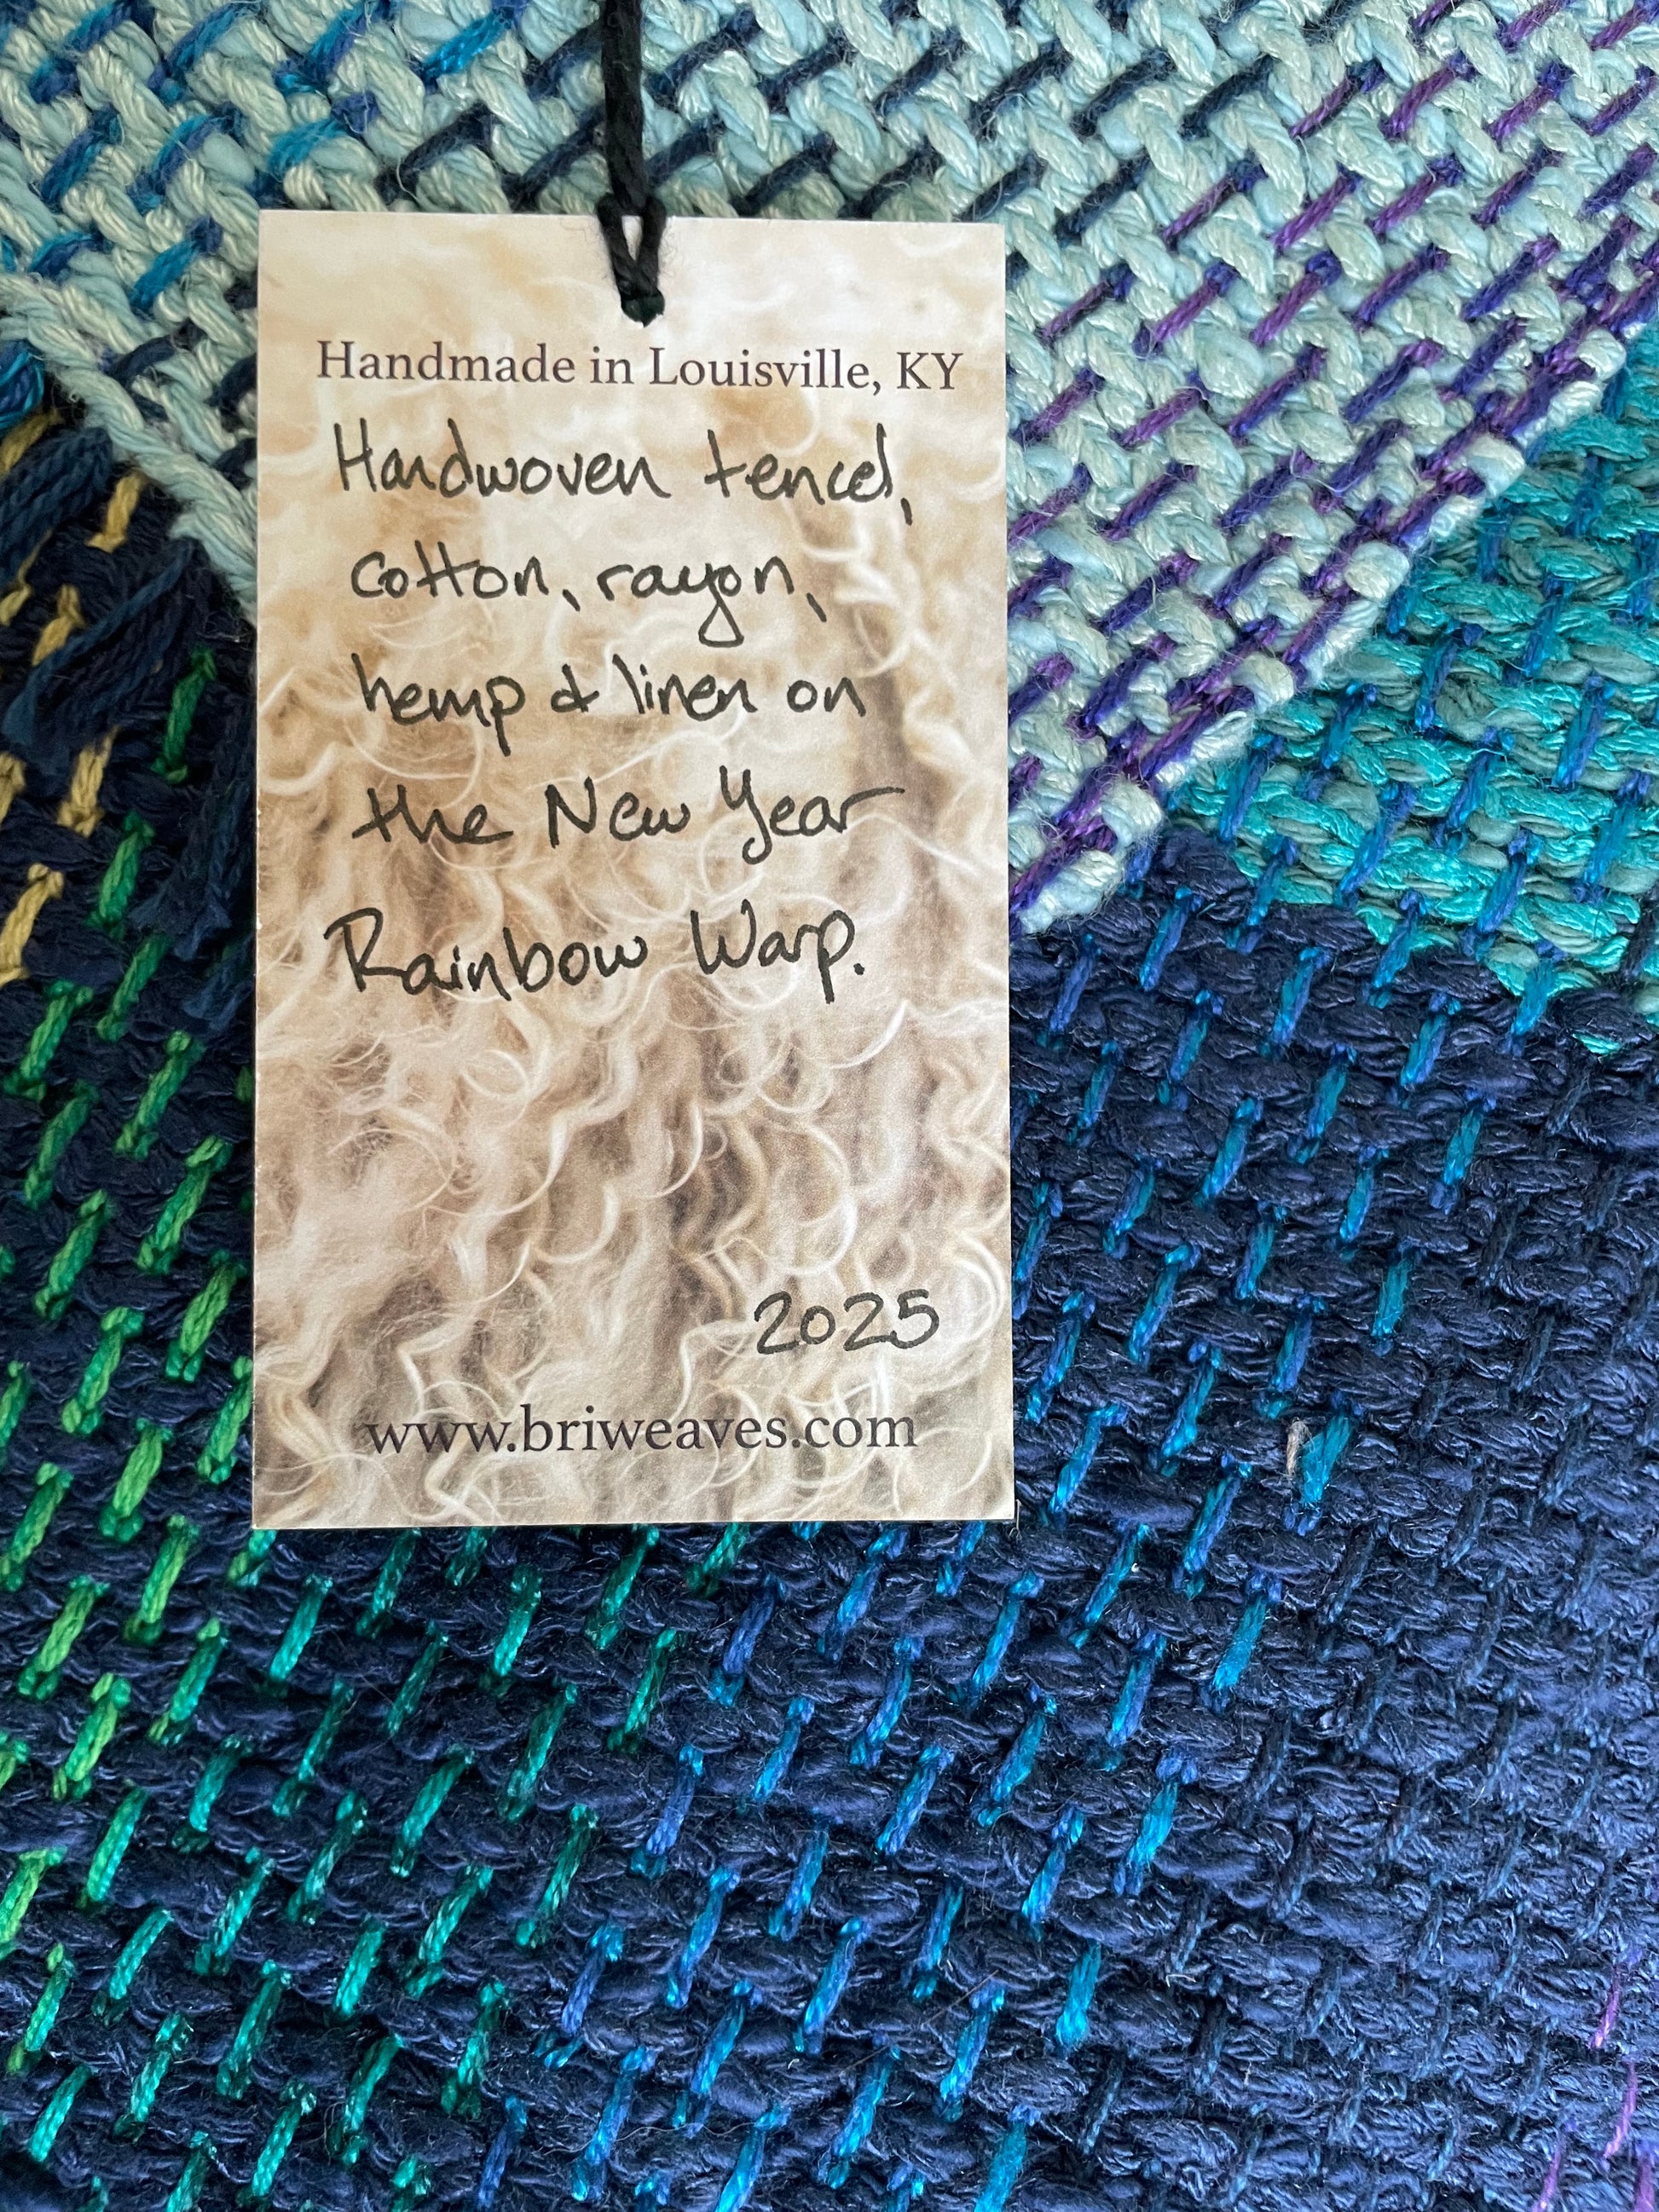 Handmade in Louisville, KY
Handwoven tencel,
cotton, rayon,
hemp & linen on
the New Year
Rainbow Warp.
2025
www.briweaves.com